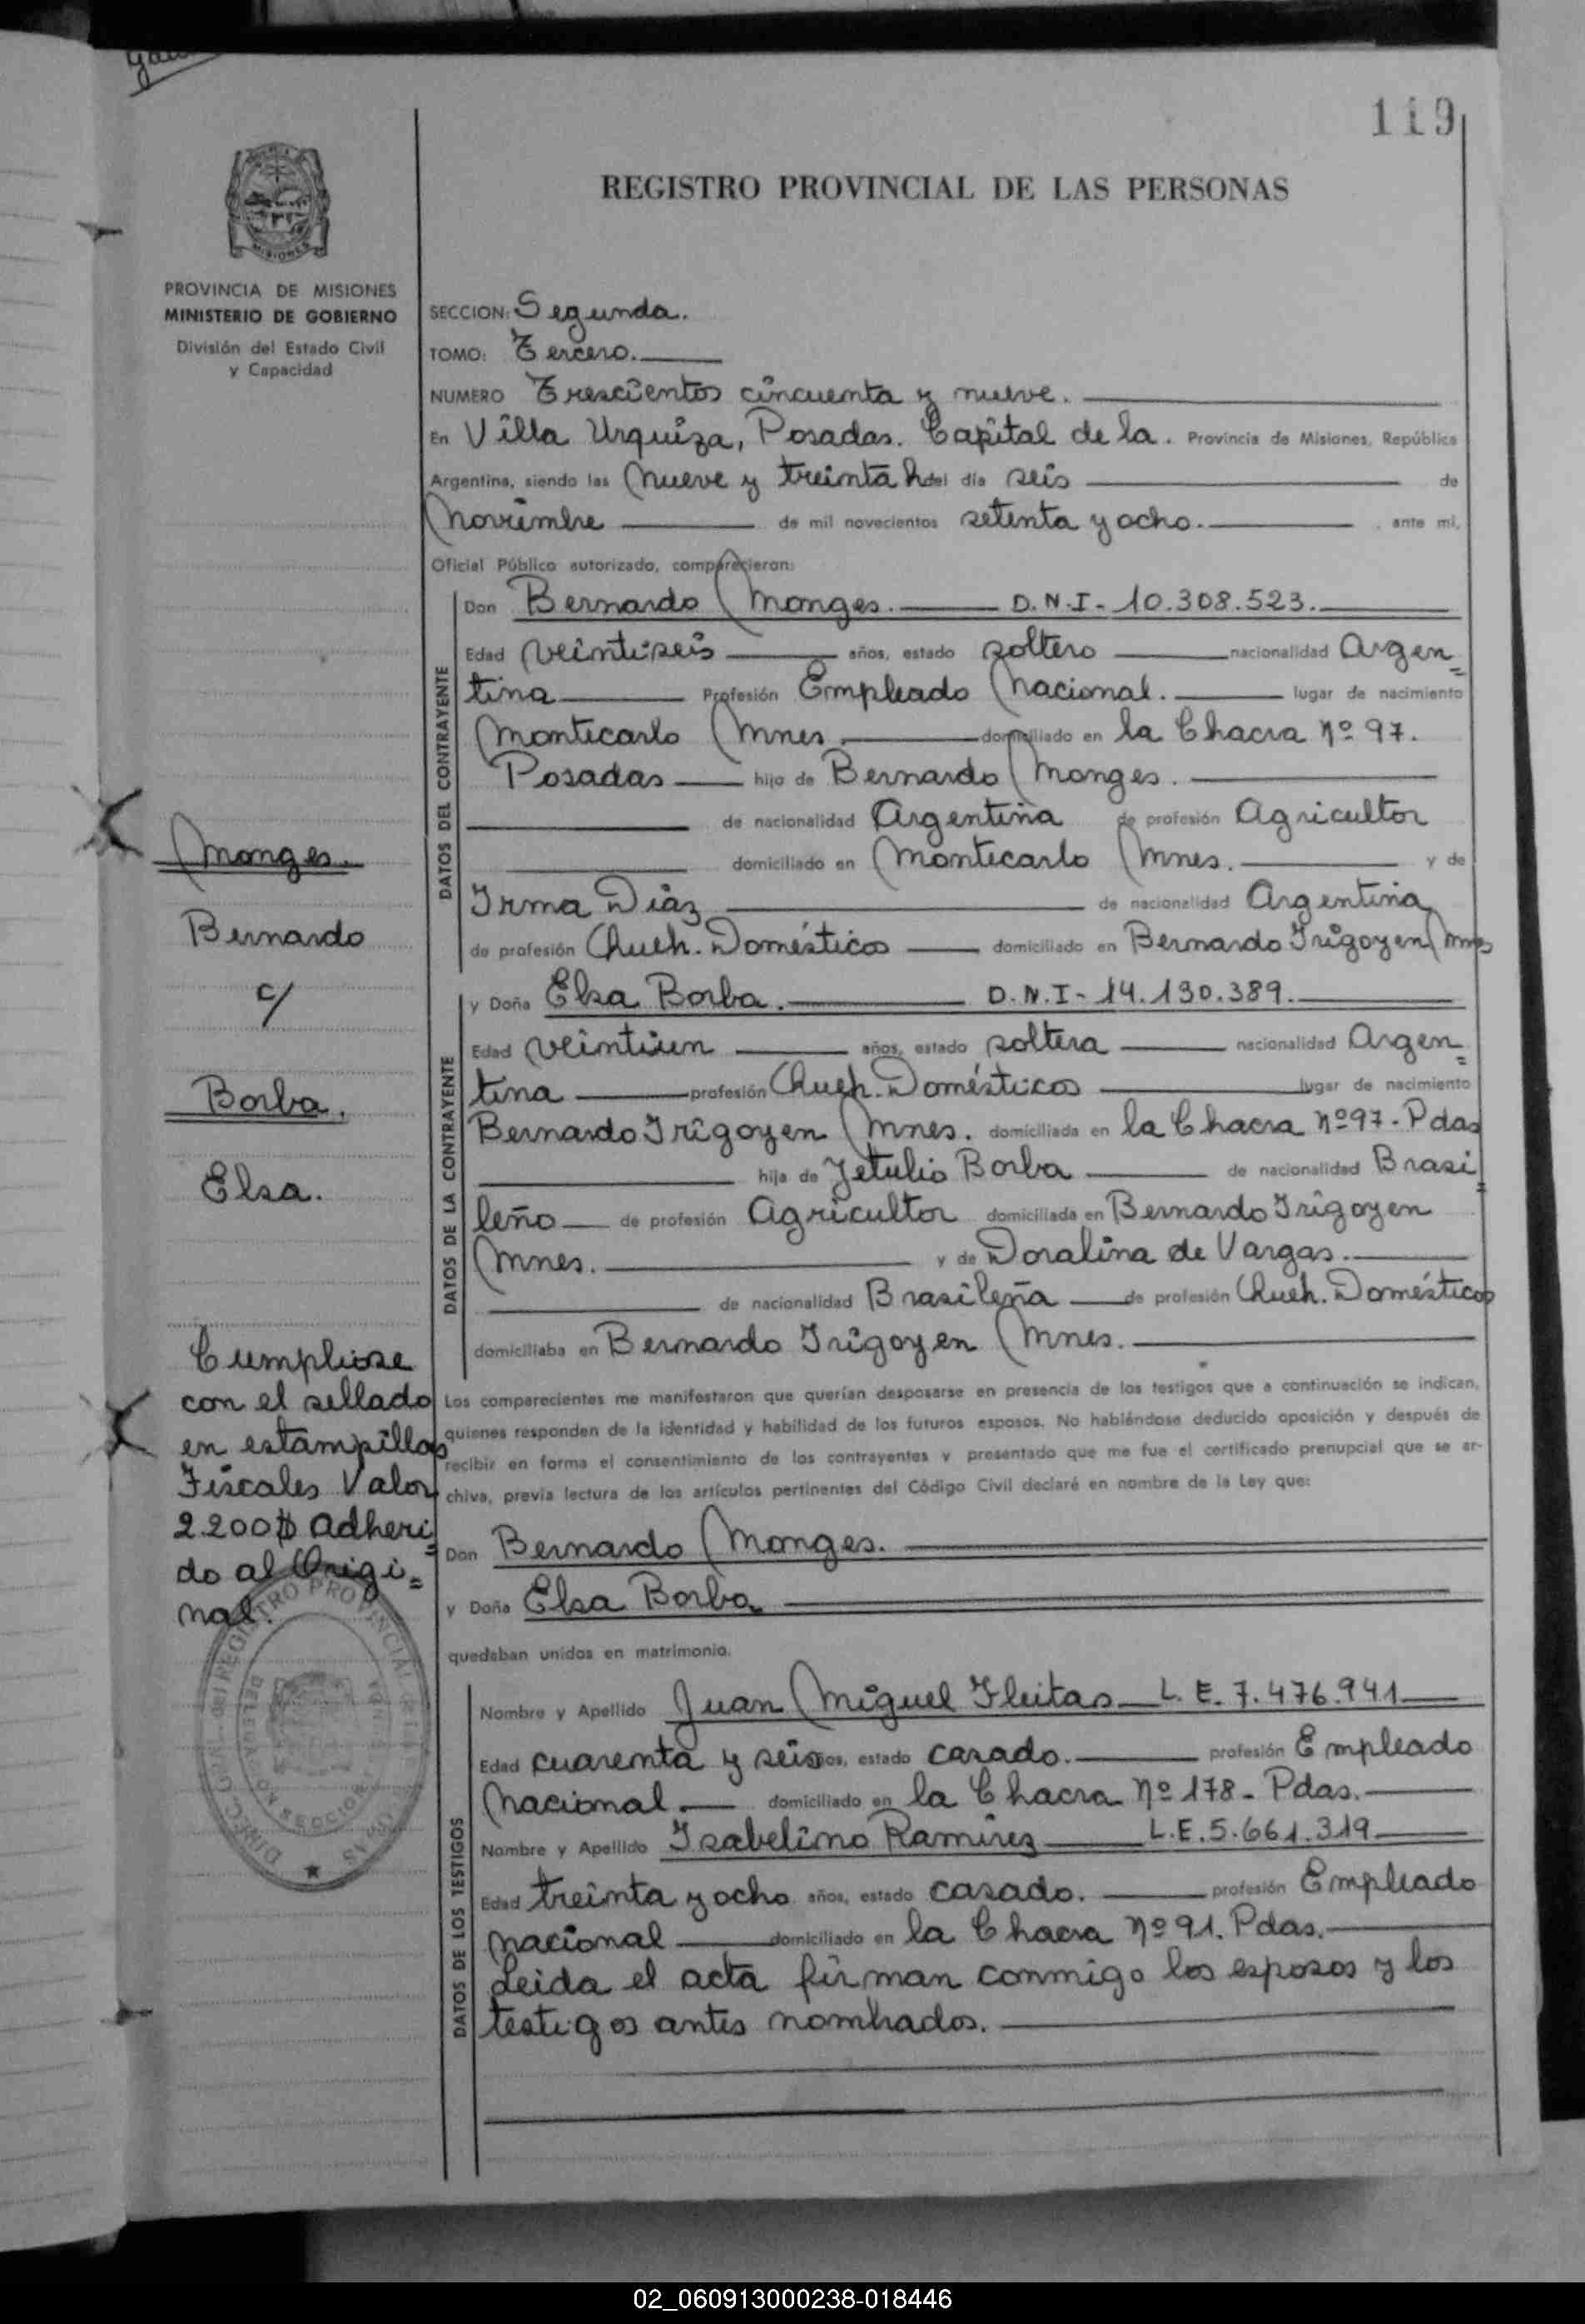 119
REGISTRO PROVINCIAL DE LAS PERSONAS
MISIONES
PROVINCIA DE MISIONES
MINISTERIO DE GOBIERNO
División del Estado Civil
y Capacidad
SECCION: Segunda.
TOMO: Tercero.
NUMERO Trescientos cincuenta y nueve.
En Villa Urquiza, Posadas. Capital de la. Provincia de Misiones, República
Argentina, siendo las Nueve y treinta h del día seis de
Noviembre de mil novecientos setenta y ocho. ante mi,
Oficial Público autorizado, comparecieron:
DATOS DEL CONTRAYENTE
Don Bernardo Monges. D.N.I- 10.308.523.
Edad veintiseis años, estado soltero nacionalidad Argen=
tina Profesión Empleado Nacional. lugar de nacimiento
Montecarlo Mnes. domiciliado en la Chacra Nº 97.
Posadas hijo de Bernardo Monges.
de nacionalidad Argentina de profesión Agricultor
domiciliado en Montecarlo Mnes. y de
Irma Diaz de nacionalidad Argentina
de profesión Queh. Domésticos domiciliado en Bernardo Irigoyen Mnes
DATOS DE LA CONTRAYENTE
y Doña Elsa Borba. D.N.I- 14.130.389.
Edad veintiun años, estado soltera nacionalidad Argen=
tina profesión Queh. Domésticos lugar de nacimiento
Bernardo Irigoyen Mnes. domiciliada en la Chacra Nº 97- Pdas
hija de Jetulio Borba de nacionalidad Brasi=
leño de profesión Agricultor domiciliada en Bernardo Irigoyen
Mnes. y de Doralina de Vargas.
de nacionalidad Brasileña de profesión Queh. Domésticos
domiciliaba en Bernardo Irigoyen Mnes.
Los comparecientes me manifestaron que querían desposarse en presencia de los testigos que a continuación se indican,
quienes responden de la identidad y habilidad de los futuros esposos. No habiéndose deducido oposición y después de
recibir en forma el consentimiento de los contrayentes y presentado que me fue el certificado prenupcial que se ar-
chiva, previa lectura de los artículos pertinentes del Código Civil declaré en nombre de la Ley que:
Don Bernardo Monges.
y Doña Elsa Borba
quedaban unidos en matrimonio.
DATOS DE LOS TESTIGOS
Nombre y Apellido Juan Miguel Fleitas L. E. 7.476.941
Edad cuarenta y seis años, estado casado. profesión Empleado
Nacional. domiciliado en la Chacra Nº 178- Pdas.
Nombre y Apellido Isabelino Ramirez L.E. 5.661.319
Edad treinta y ocho años, estado casado. profesión Empleado
Nacional domiciliado en la Chacra Nº 91. Pdas.
Leida el acta firman conmigo los esposos y los
testigos antes nombrados.
Monges.
Bernardo
c/
Borba.
Elsa.
Cumpliose
con el sellado
en estampillas
Fiscales Valor
2.200$ adheri=
do al Origi=
nal.
REGISTRO PROVINCIAL
02_060913000238-018446